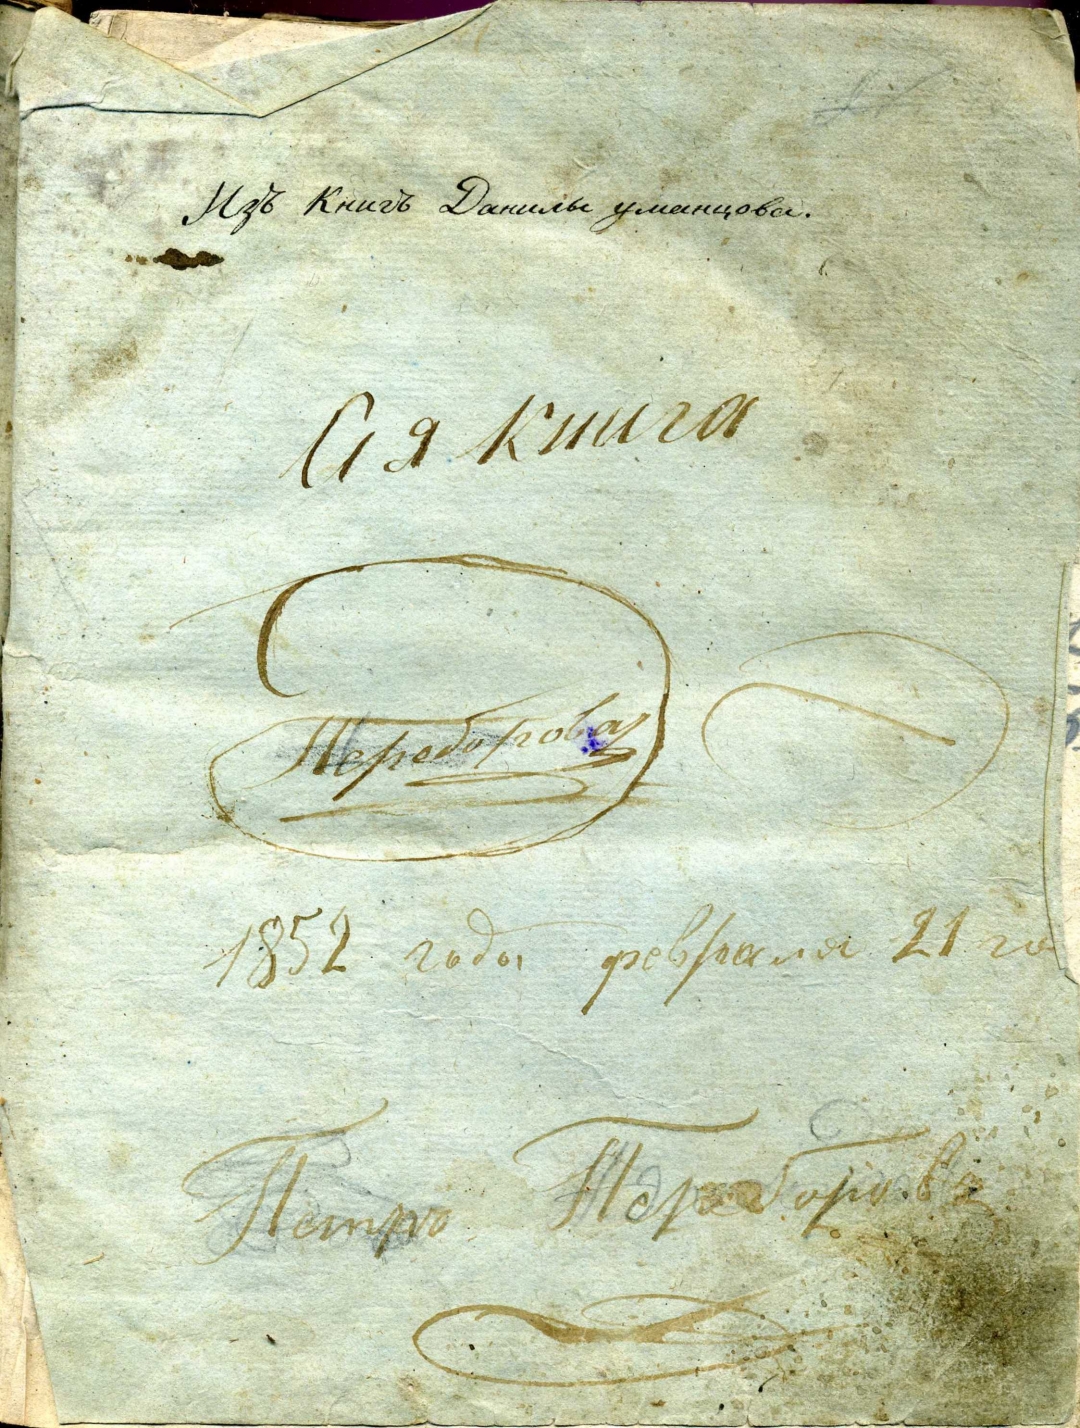 Изъ Книгъ Данилы уманцова.
Сія книга
Переборова
1852 года февраля 21 го
Петръ Переборовъ